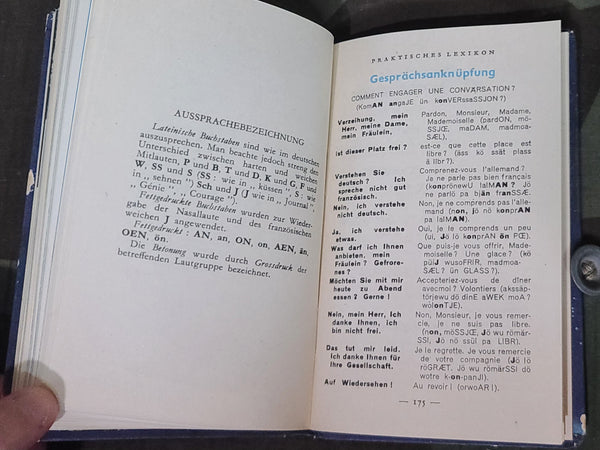 AUSSPRACHEBEZEICHNUNG
Lateinische Buchstaben sind wie im deutschen
auszusprechen. Man beachte jedoch streng den
Unterschied zwischen harten und weichen
Mitlauten, P und B, T und D, K und G, F und
W, SS und S (SS : wie in „ küssen ", S : wie
in „ sehnen ") Sch und J (J wie in „ Journal ",
„ Génie ", „ Courage ").
Fettgedruckte Buchstaben wurden zur Wieder-
gabe der Nasallaute und des französischen
weichen J angewendet.
Fettgedruckt : AN, an, ON, on, AEN, än,
OEN, ön.
Die Betonung wurde durch Grossdruck der
betreffenden Lautgruppe bezeichnet.
PRAKTISCHES LEXIKON
Gesprächsanknüpfung
COMMENT ENGAGER UNE CONVERSATION ?
(KomAN angaJE ün konVERssaSSJON?)
Verzeihung, mein Herr, meine Dame, mein Fräulein,
Pardon, Monsieur, Madame,
Mademoiselle (pardON, mö-
SSJŒ, maDAM, madmoa-
SÆL).
Ist dieser Platz frei ?
est-ce que cette place est
libre ? (äss kö ssät plass
ä lībr ?)
Verstehen Sie deutsch ? Ich spreche nicht gut französisch.
Comprenez-vous l'allemand ?
Je ne parle pas bien français
(konprönewU lalMAN ? Jö
nö parl pa bjän franSSÆ)
Nein, ich verstehe nicht deutsch.
Non, je ne comprends pas l'alle-
mand (non, jö nö konprAN
pa lalMAN).
Ja, ich verstehe etwas.
Oui, je le comprends un peu
(ui, Jö lö konprAN ön PŒ).
Was darf ich Ihnen anbieten, mein Fräulein ? Gefrore-nes ?
Que puis-je vous offrir, Made-
moiselle ? Une glace ? (kö
püiJ wusoFRIR, madmoa-
SÆL ? ün GLASS ?).
Möchten Sie mit mir heute zu Abend essen ? Gerne !
Accepteriez-vous de dîner
avec moi ? Volontiers (akssäp-
törjewu dö dinE aWEK moA ?
wolonTJE).
Nein, mein Herr, ich danke Ihnen, ich bin nicht frei.
Non, Monsieur, je vous remer-
cie, je ne suis pas libre.
(non, möSSJŒ, Jö wu römär-
SSI, Jö nö ssüi pa LIBR).
Das tut mir leid. Ich danke Ihnen für Ihre Gesellschaft.
Je le regrette. Je vous remercie
de votre compagnie (Jö lö
röGRÆT. Jö wu römärSSI dö
wotrs k-on-panJI).
Auf Wiedersehen !
Au revoir ! (orwoAR !).
— 175 —